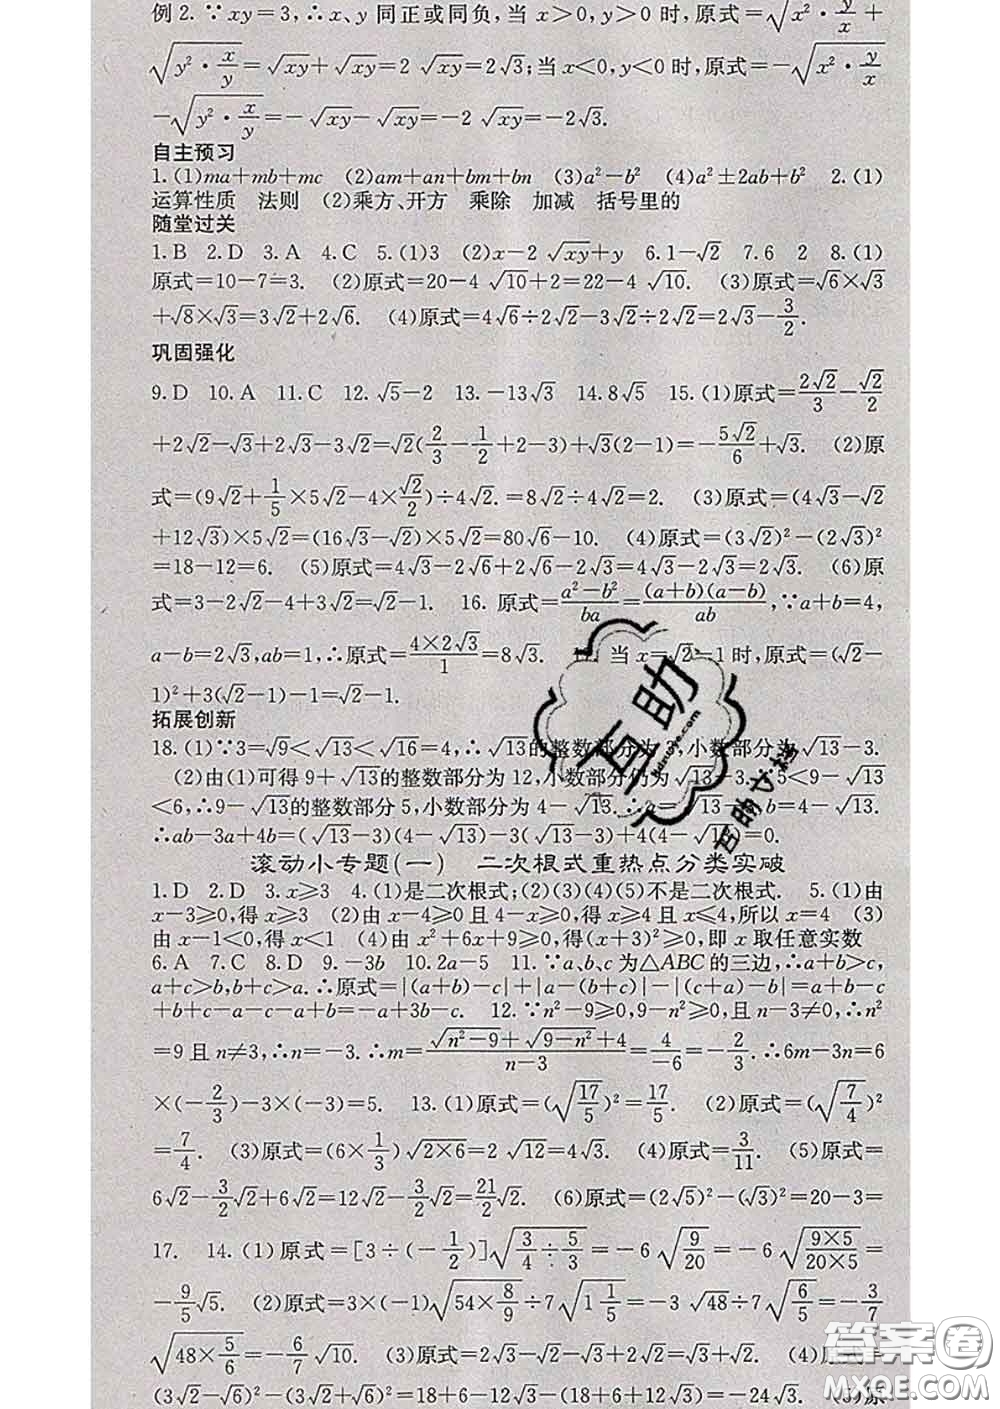 例2. ∵xy=3,∴x、y同正或同负,当x>0,y>0时,原式=√(x²·y/x)+
√(y²·x/y)=√xy+√xy=2√xy=2√3;当x<0,y<0时,原式=-√(x²·y/x)
-√(y²·x/y)=-√xy-√xy=-2√xy=-2√3.
自主预习
1.(1)ma+mb+mc (2)am+an+bm+bn (3)a²-b² (4)a²±2ab+b² 2.(1)
运算性质 法则 (2)乘方、开方 乘除 加减 括号里的
随堂过关
1.B 2.D 3.A 4.C 5.(1)3 (2)x-2√xy+y 6.1-√2 7.6 2 8.(1)
原式=10-7=3. (2)原式=20-4√10+2=22-4√10. (3)原式=√6×√3
+√8×√3=3√2+2√6. (4)原式=4√6÷2√2-3√2÷2√2=2√3-3/2.
巩固强化
9.D 10.A 11.C 12.√5-2 13.-13√3 14.8√5 15.(1)原式=2√2/3-√2/2
+2√2-√3+2√3-3√2=√2(2/3-1/2+2-3)+√3(2-1)=-5√2/6+√3. (2)原
式=(9√2+1/5×5√2-4×√2/2)÷4√2.=8√2÷4√2=2. (3)原式=(4√3-√2
+12√3)×5√2=(16√3-√2)×5√2=80√6-10. (4)原式=(3√2)²-(2√3)²
=18-12=6. (5)原式=4√3-2√6+2√6-2√3=4√3-2√3=2√3. (6)原
式=3-2√2-4+3√2=√2-1. 16. 原式=(a²-b²)/ba=(a+b)(a-b)/ab,∵a+b=4,
a-b=2√3,ab=1,∴原式=(4×2√3)/1=8√3. 当x=√2-1时,原式=(√2-
1)²+3(√2-1)-1=√2-1.
拓展创新
18.(1)∵3=√9<√13<√16=4,∴√13的整数部分为3,小数部分为√13-3.
(2)由(1)可得9+√13的整数部分为12,小数部分仍为√13-3.∵5<9-√13
<6,∴9-√13的整数部分5,小数部分为4-√13.∴a=√13-3,b=4-√13.
∴ab-3a+4b=(√13-3)(4-√13)-3(√13-3)+4(4-√13)=0.
滚动小专题(一) 二次根式重热点分类实破
1.D 2.D 3.x≥3 4.(1)是二次根式;(2)(3)(4)(5)不是二次根式. 5.(1)由
x-3≥0,得x≥3 (2)由x-4≥0且4-x≥0,得x≥4且x≤4,所以x=4 (3)
由x-1<0,得x<1 (4)由x²+6x+9≥0,得(x+3)²≥0,即x取任意实数
6.A 7.C 8.D 9.-3b 10.2a-5 11.∵a、b、c为△ABC的三边,∴a+b>c,
a+c>b,b+c>a.∴原式=|(a+b)-c|+|a-(b+c)|-|(c+a)-b|=a+b-c
+b+c-a-c-a+b=-a+3b-c. 12.∵n²-9≥0,9-n²≥0,且n-3≠0,∴n²
=9且n≠3,∴n=-3.∴m=(√(n²-9)+√(9-n²)+4)/(n-3)=4/-6=-2/3.∴6m-3n=6
×(-2/3)-3×(-3)=5. 13.(1)原式=(√(17/5))²=17/5. (2)原式=(√(7/4))²
=7/4. (3)原式=(6×1/3)√(2×6)=2√12=4√3. (4)原式=3/11. (5)原式=
6√2-3/2√2+6√2=12√2-3/2√2=21/2√2. (6)原式=(2√5)²-(√3)²=20-3=
17. 14.(1)原式=[3÷(-1/2)]√(3/4÷5/3)=-6√(9/20)=-6√((9×5)/(20×5))=
-9/5√5. (2)原式=3×(-1)√(54×8/9)÷7√(1 1/5)=-3√48÷7√(6/5)=-3/7
√(48×5/6)=-6/7√10. (3)原式=2√3-√3+√2=√3+√2. (4)原式=
(3√2-√6)²-(3√2+√6)²=18+6-12√3-(18+6+12√3)=-24√3. (5)原
互助
互助文档
答案圈
MXQE.COM